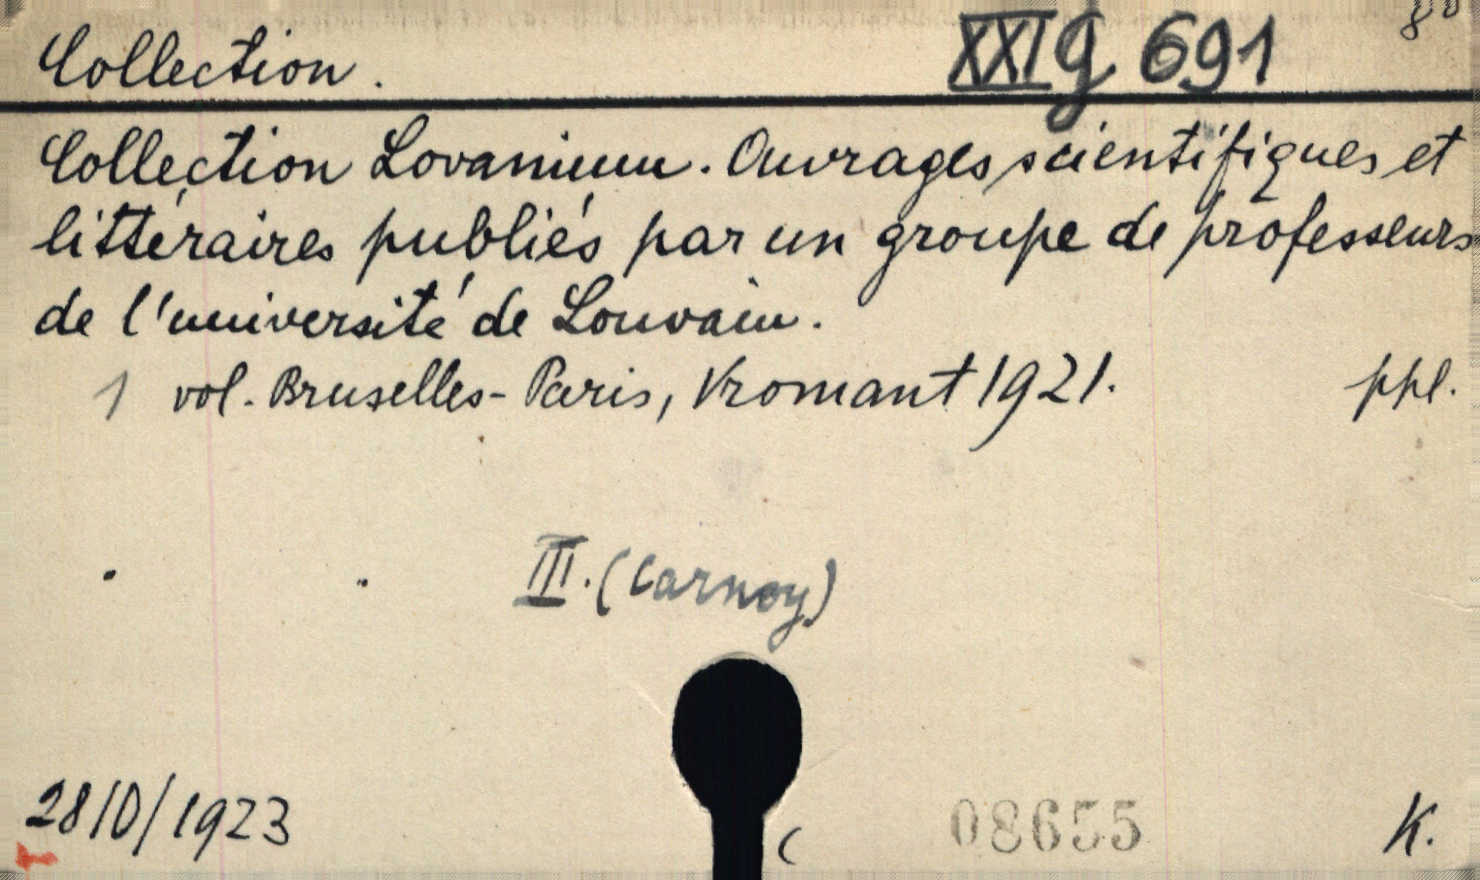 Collection. XXI g 691 8°
Collection Lovanium. Ouvrages scientifiques et
littéraires publiés par un groupe de professeurs
de l'université de Louvain.
1 vol. Bruselles-Paris, Vromant 1921. ppl.
III. (Carnoy)
28/D/1923 08655 K.